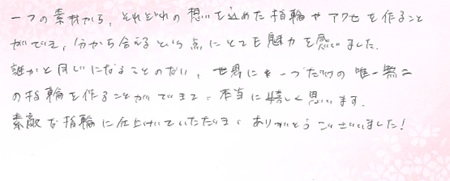 一つの素材から、それぞれの想いを込めた指輪やアクセを作ること
ができ、分かち合えるという点にとても魅力を感じました。
誰かと同じになることのない、世界に一つだけの唯一無二
の指輪を作ることができて、本当に嬉しく思います。
素敵な指輪に仕上げていただき、ありがとうございました!